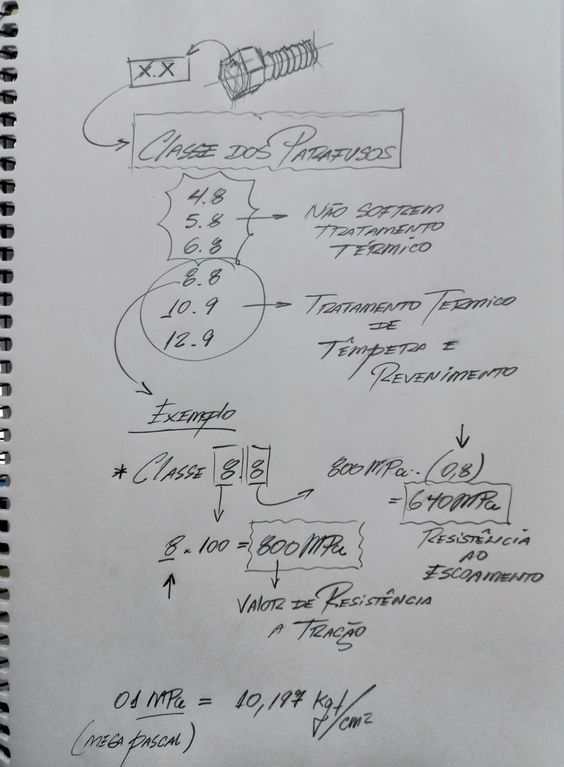 X.X
CLASSE DOS PARAFUSOS
4.8
5.8
6.8
NÃO SOFREM
TRATAMENTO
TÉRMICO
8.8
10.9
12.9
TRATAMENTO TERMICO
DE
TÊMPERA E
REVENIMENTO
EXEMPLO
* CLASSE 8.8
800 MPa . (0,8)
= 640 MPa
RESISTÊNCIA
AO
ESCOAMENTO
8 . 100 = 800 MPa
VALOR DE RESISTÊNCIA
A TRAÇÃO
01 MPa = 10,197 kgf/cm²
(MEGA PASCAL)